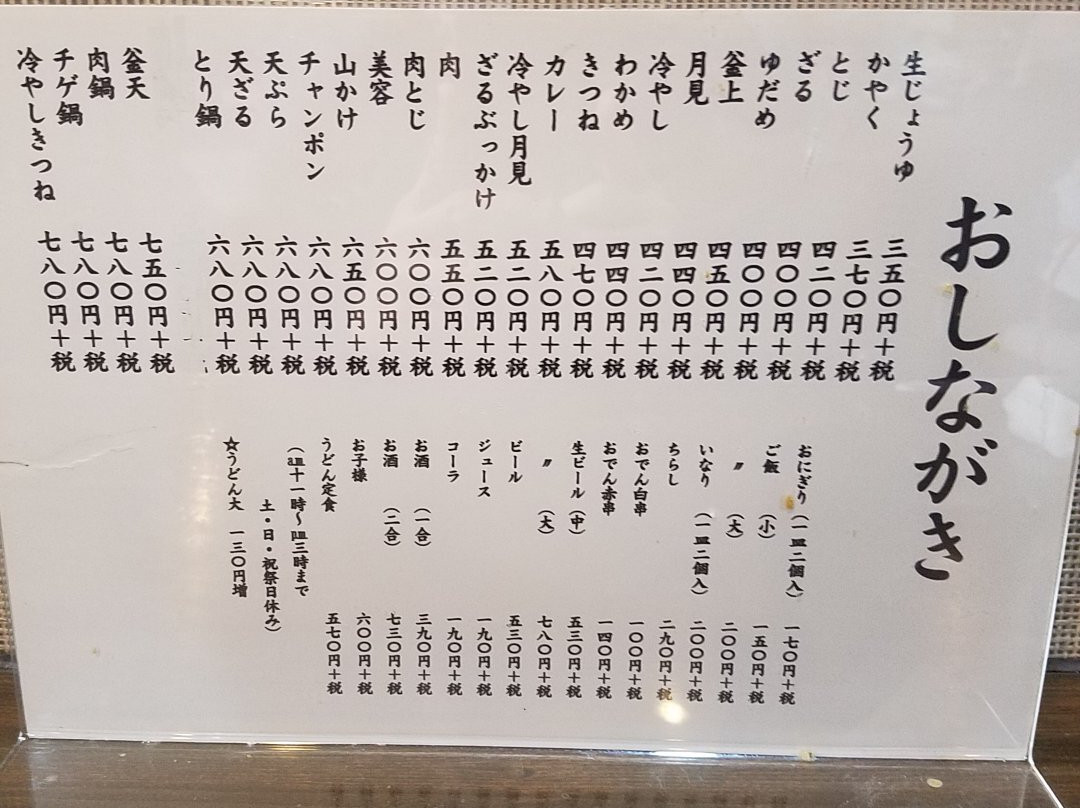 おしながき
生じょうゆ 三五〇円+税
かやく 三七〇円+税
とじ 四二〇円+税
ざる 四〇〇円+税
ゆだめ 四〇〇円+税
釜上 四五〇円+税
月見 四四〇円+税
冷やし 四二〇円+税
わかめ 四四〇円+税
きつね 四七〇円+税
カレー 五八〇円+税
冷やし月見 五二〇円+税
ざるぶっかけ 五二〇円+税
肉 五五〇円+税
肉とじ 六〇〇円+税
美容 六〇〇円+税
山かけ 六五〇円+税
チャンポン 六八〇円+税
天ぷら 六八〇円+税
天ざる 六八〇円+税
とり鍋 六八〇円+税
釜天 七五〇円+税
肉鍋 七八〇円+税
チゲ鍋 七八〇円+税
冷やしきつね 七八〇円+税
おにぎり（一皿二個入） 一七〇円+税
ご飯（小） 一五〇円+税
〃（大） 二〇〇円+税
いなり（一皿二個入） 二〇〇円+税
ちらし 二九〇円+税
おでん白串 一〇〇円+税
おでん赤串 一四〇円+税
生ビール（中） 五三〇円+税
〃（大） 七八〇円+税
ビール 五三〇円+税
ジュース 一九〇円+税
コーラ 一九〇円+税
お酒（一合） 三九〇円+税
お酒（二合） 七三〇円+税
お子様 六〇〇円+税
うどん定食 五七〇円+税
（am十一時〜pm三時まで
土・日・祝祭日休み）
☆うどん大 一三〇円増